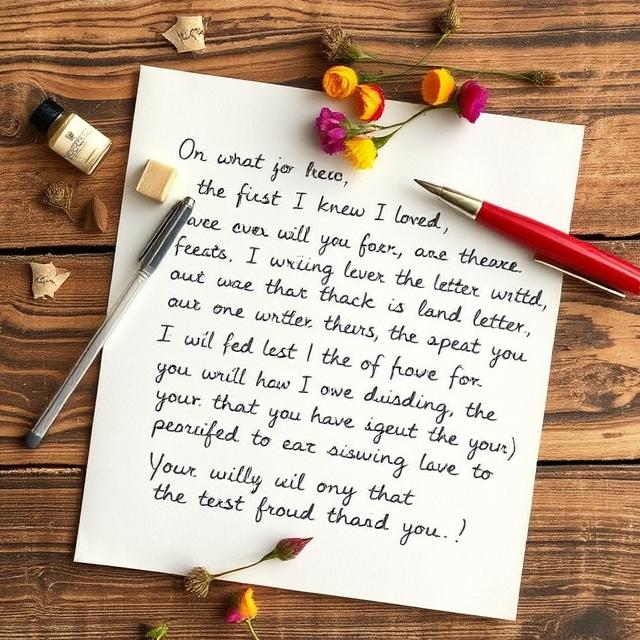 On what jor hero,
the first I knew I loved,
wee ever will you forr, are theare
feeats. I wriing lever the letter writtd,
out wae that thack is land letter.,
our one writler theirs, the apeat you
I wil fed lest I the of frove for.
you wrill haw I owe duisding, the
your. that you have igeut the your)
pesruifed to ear siswing lave to
Your willy wil ony that
the terst froud thard you..!